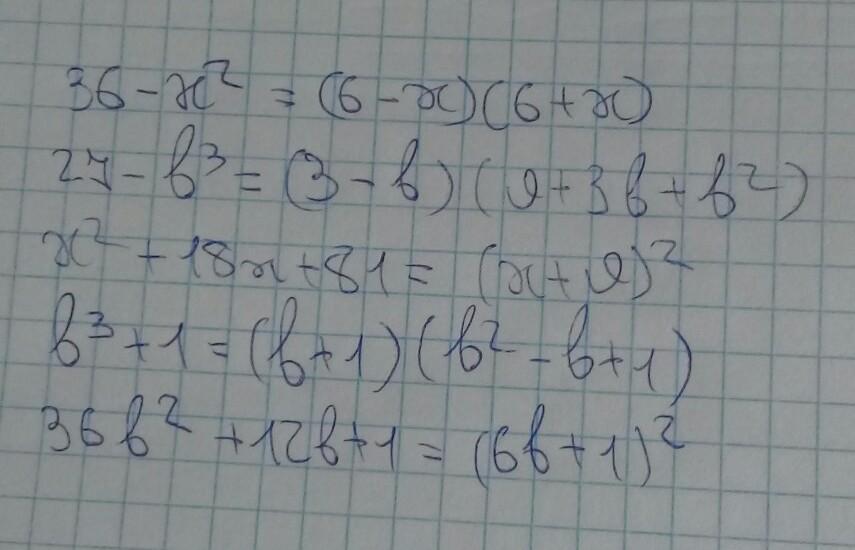 36 - x² = (6 - x)(6 + x)
27 - b³ = (3 - b)(9 + 3b + b²)
x² + 18x + 81 = (x + 9)²
b³ + 1 = (b + 1)(b² - b + 1)
36b² + 12b + 1 = (6b + 1)²